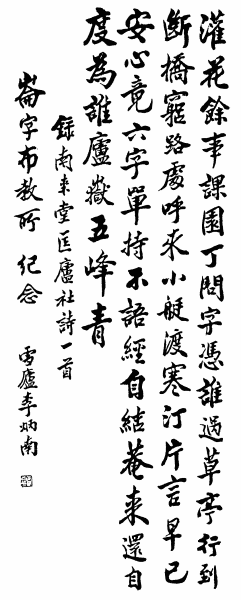 灌花餘事課園丁問字憑誰過草亭行到
斷橋窮路處呼來小艇渡寒汀片言早已
安心竟六字單持不語經自結菴來還自
度為誰廬嶽五峰青
錄南來堂匡廬社詩一首
崙字布教所 紀念
雪廬李炳南